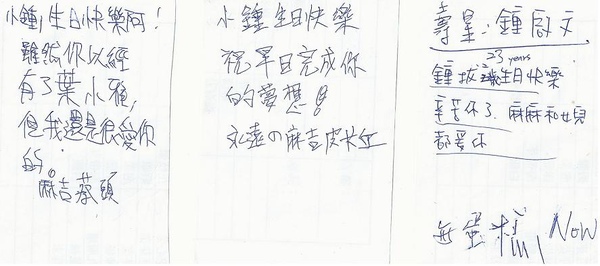 小鍾!生日快樂阿!
雖然你以經
有了葉小雅,
但我還是很愛你
的。
麻吉蔡頭
小鍾生日快樂
祝早日完成你
的夢想!!
永遠の麻吉皮
壽星:鍾啟文
23 years
鍾拔 生日快樂
辛苦你了. 麻麻和女兒
都愛你
NOW